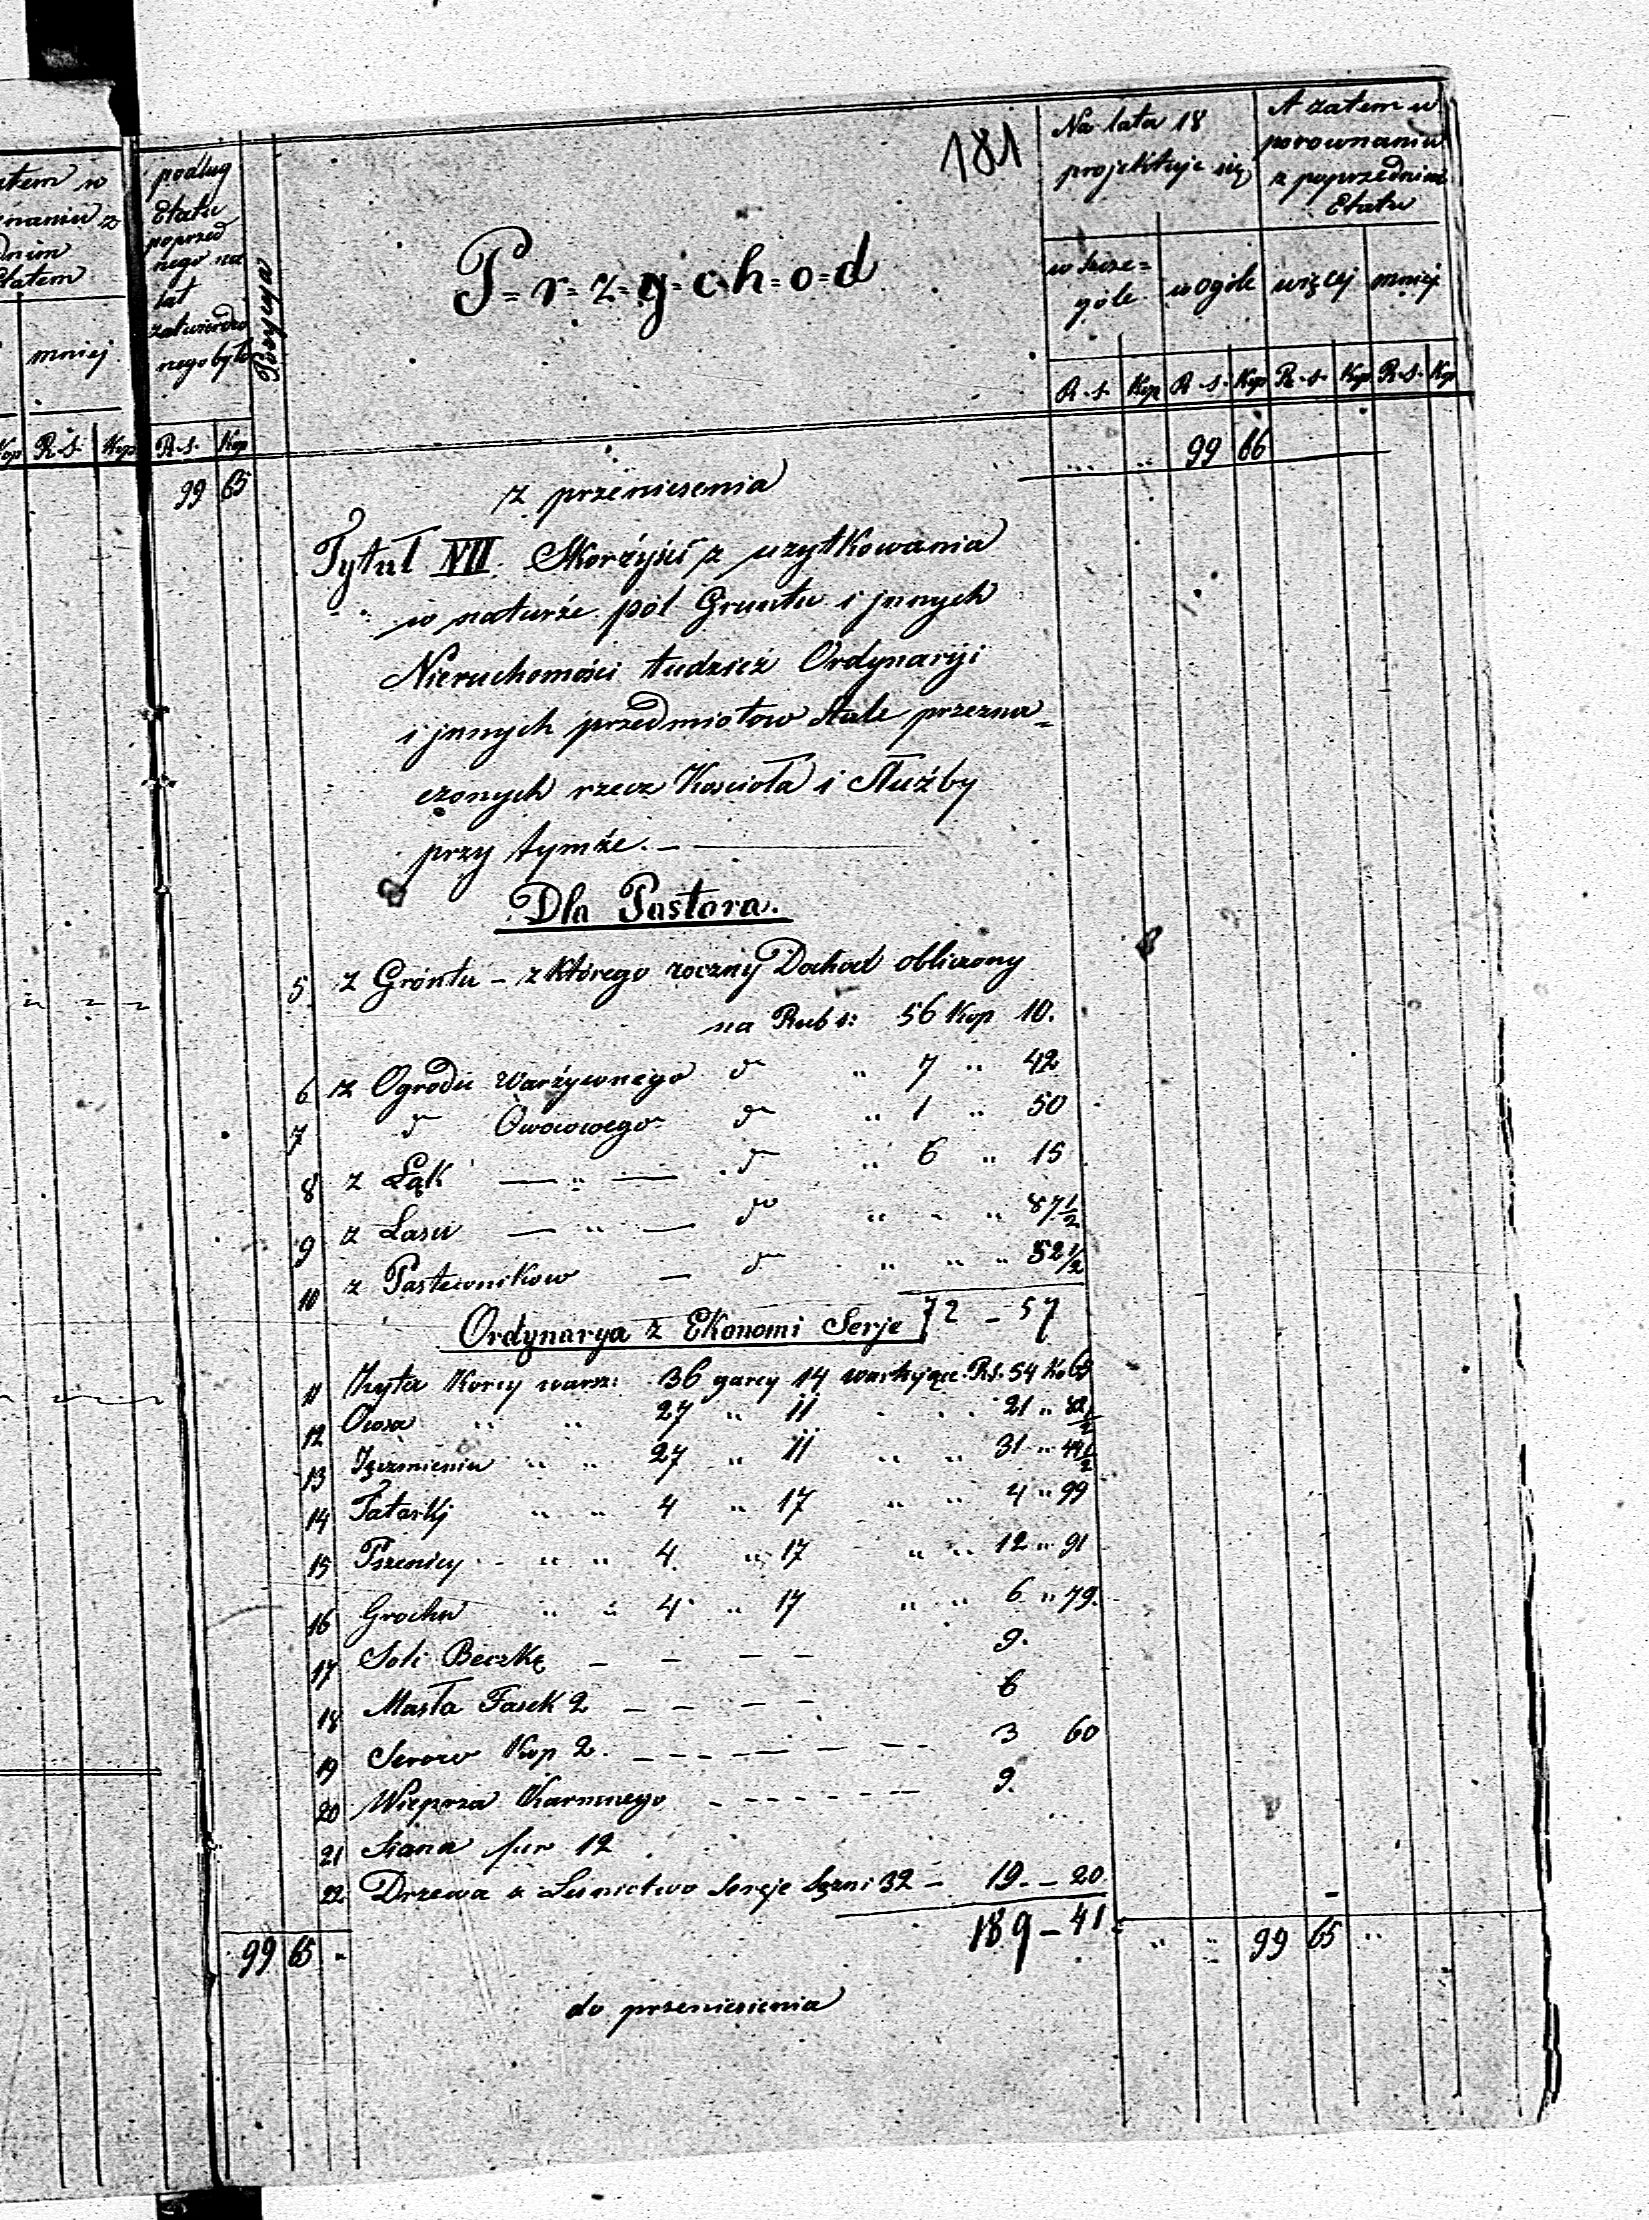 atem w
naniu z
dnim
Etatem
mniej
Kop R.s. Kop
podług
Etatu
poprzed
nego na
lat
zatwierdzo
nego było
R.s. Kop
Pozycya
P=r=z=y=c=h=o=d
181
Na lata 18
projektuje się
w szcze=
góle
w ogóle
A zatem w
porownaniu
z poprzednim
Etatu
więcej
mniej
R.s. Kop R.s. Kop R.s. Kop R.s. Kop
99 65 z przeniesenia 99 66
Tytuł VII. Skorzyśi z uzytkowania
w naturźe pól Gruntu i jnnych
Nieruchomości tudzież Ordynaryi
i jnnych przedmiotow stale przezna=
czonych rzecz Kościoła i Służby
przy tymźe. —
Dla Pastora.
5. z Gróntu – z którego roczny Dochod obliczony
na Rub s: 56 Kop 10.
6 z Ogrodu Warźywnego do " 7 " 42
7 do Owocowego do " 1 " 50
8 z Łąk — " — do " 6 " 15
9 z Lasu — " — do " " " 87½
10 z Pastewnikow — do " " " 52½
72 – 57
Ordynarya z Ekonomi Serje
11 Żyta Korcy warsz: 36 garcy 14 R.s. 54
12 Owsa " " 27 " 11 " " 21 "
13 Jęczmieniu " " 27 " 11 " " 31 " 44½
14 Tatarkj " " 4 " 17 " " 4 " 99
15 Pszenicy " " 4 " 17 " " 12 " 91
16 Grochu " " 4 " 17 " " 6 " 79.
17 Soli Beczkę – – – – 9.
18 Masła Fasek 2 – – – – 6
19 Serow Kop 2. – – – – 3 60
20 Wieprza Karmnego – – – – 9.
21 Siana fur 12
22 Drzewa z Leśnictwa Sereje Sążni 32 – 19. – 20.
189 – 41
99 65 - " " 99 65 "
do przeniesienia